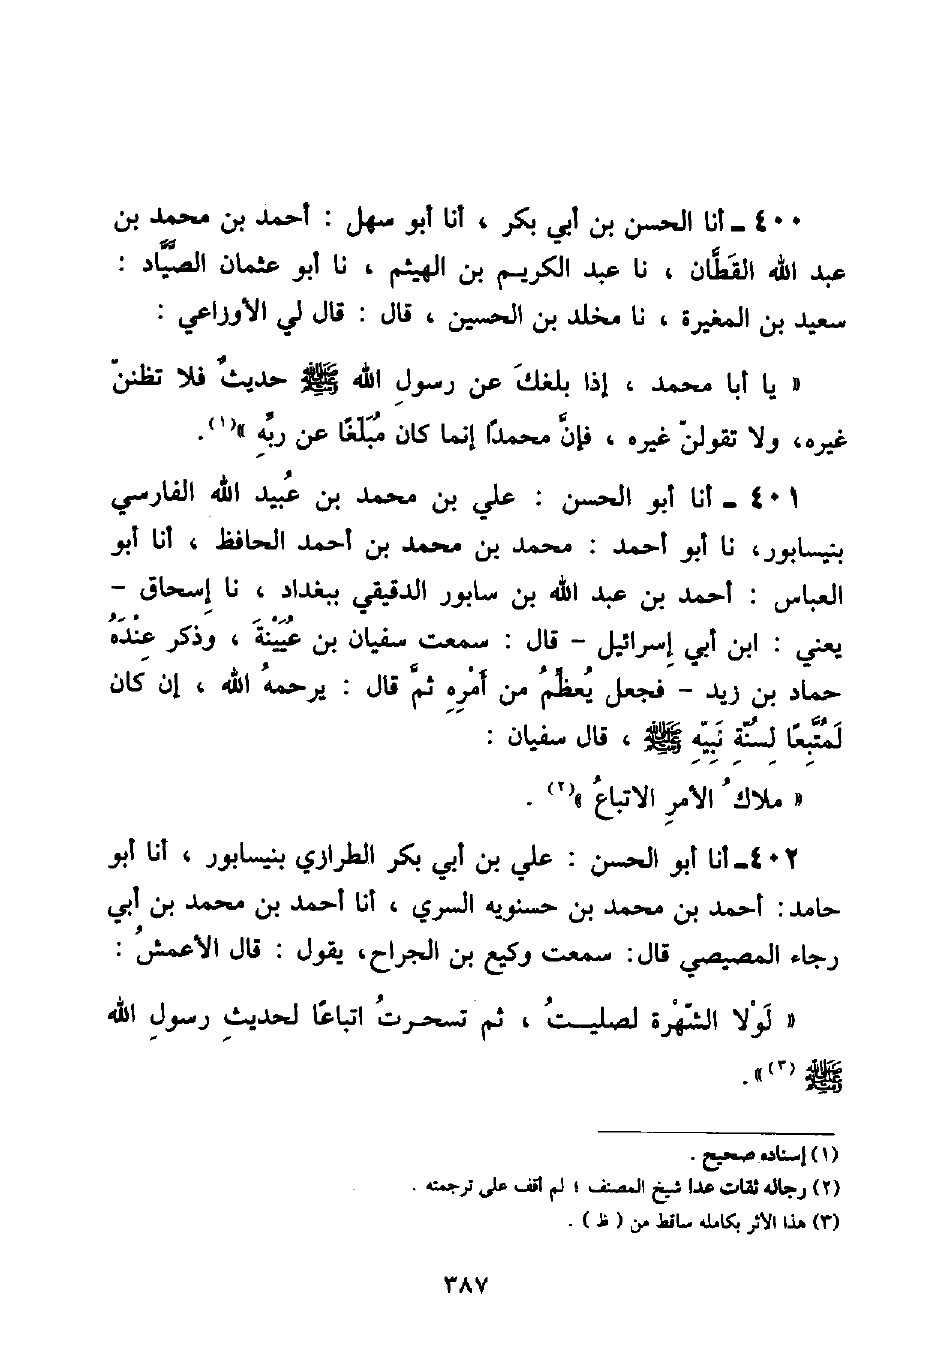 ٤٠٠ ـ أنا الحسن بن أبي بكر ، أنا أبو سهل : أحمد بن محمد بن
عبد الله القَطَّان ، نا عبد الكريم بن الهيثم ، نا أبو عثمان الصيَّاد :
سعيد بن المغيرة ، نا مخلد بن الحسين ، قال : قال لي الأوزاعي :
« يا أبا محمد ، إذا بلغكَ عن رسولِ الله ﷺ حديثٌ فلا تظننّ
غيره، ولا تقولنّ غيره ، فإنَّ محمدًا إنما كان مُبَلّغًا عن ربِّهِ »(١).
٤٠١ ـ أنا أبو الحسن : علي بن محمد بن عُبيد الله الفارسي
بنيسابور، نا أبو أحمد : محمد بن محمد بن أحمد الحافظ ، أنا أبو
العباس : أحمد بن عبد الله بن سابور الدقيقي ببغداد ، نا إِسحاق –
يعني : ابن أبي إسرائيل – قال : سمعت سفيان بن عُيَيْنةَ ، وذكر عِنْدَهُ
حماد بن زيد – فجعل يُعظِّمُ من أَمْرِهِ ثمَّ قال : يرحمهُ الله ، إن كان
لَمُتَّبِعًا لِسُنَّةِ نَبِيّهِ ﷺ ، قال سفيان :
« ملاكُ الأمرِ الاتباعُ »(٢) .
٤٠٢ـ أنا أبو الحسن : علي بن أبي بكر الطرازي بنيسابور ، أنا أبو
حامد: أحمد بن محمد بن حسنويه السري ، أنا أحمد بن محمد بن أبي
رجاء المصيصي قال: سمعت وكيع بن الجراح، يقول : قال الأعمشُ :
« لَوْلا الشّهْرة لصليتُ ، ثم تسحرتُ اتباعًا لحديثِ رسولِ الله
ﷺ (٣)».
(١) إسناده صحيح .
(٢) رجاله ثقات عدا شيخ المصنف ؛ لم أقف على ترجمته .
(٣) هذا الأثر بكامله ساقط من ( ظ ) .
٣٨٧